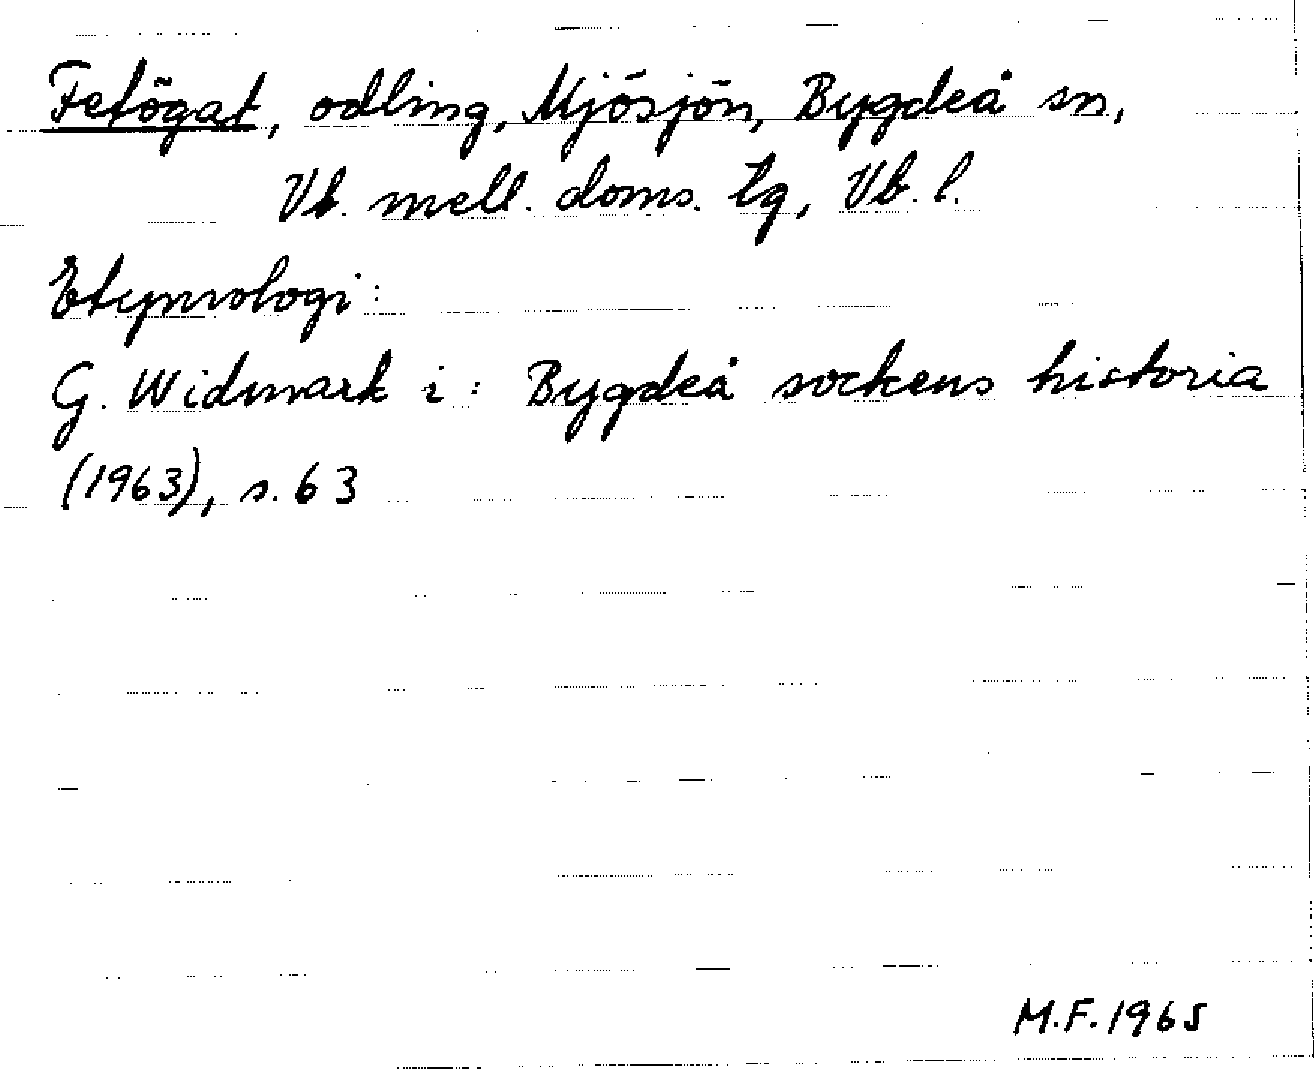 Fetögat, odling, Mjösjön, Bygdeå sn,
Vb. mell. doms. tg, Vb. l.
Etymologi:
G. Widmark i: Bygdeå sockens historia
(1963), s. 63
M.F. 1965